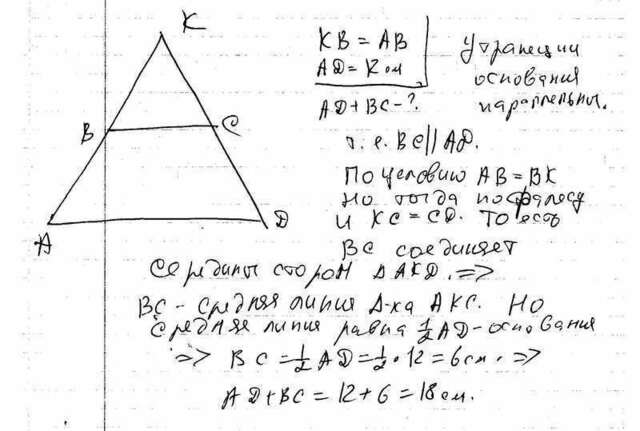 K
B
C
A
D
KB = AB
AD = K см
AD + BC - ?
У трапеции
основания
параллельны.
т. е. BC || AD.
По условию AB = BK
Но тогда по Фалесу
и KC = CD. То есть
BC соединяет
Середины сторон Δ AKD. =>
BC - средняя линия Δ-ка AKC. Но
Средняя линия равна 1/2 AD - основания
=> BC = 1/2 AD = 1/2 · 12 = 6 см. =>
AD + BC = 12 + 6 = 18 см.